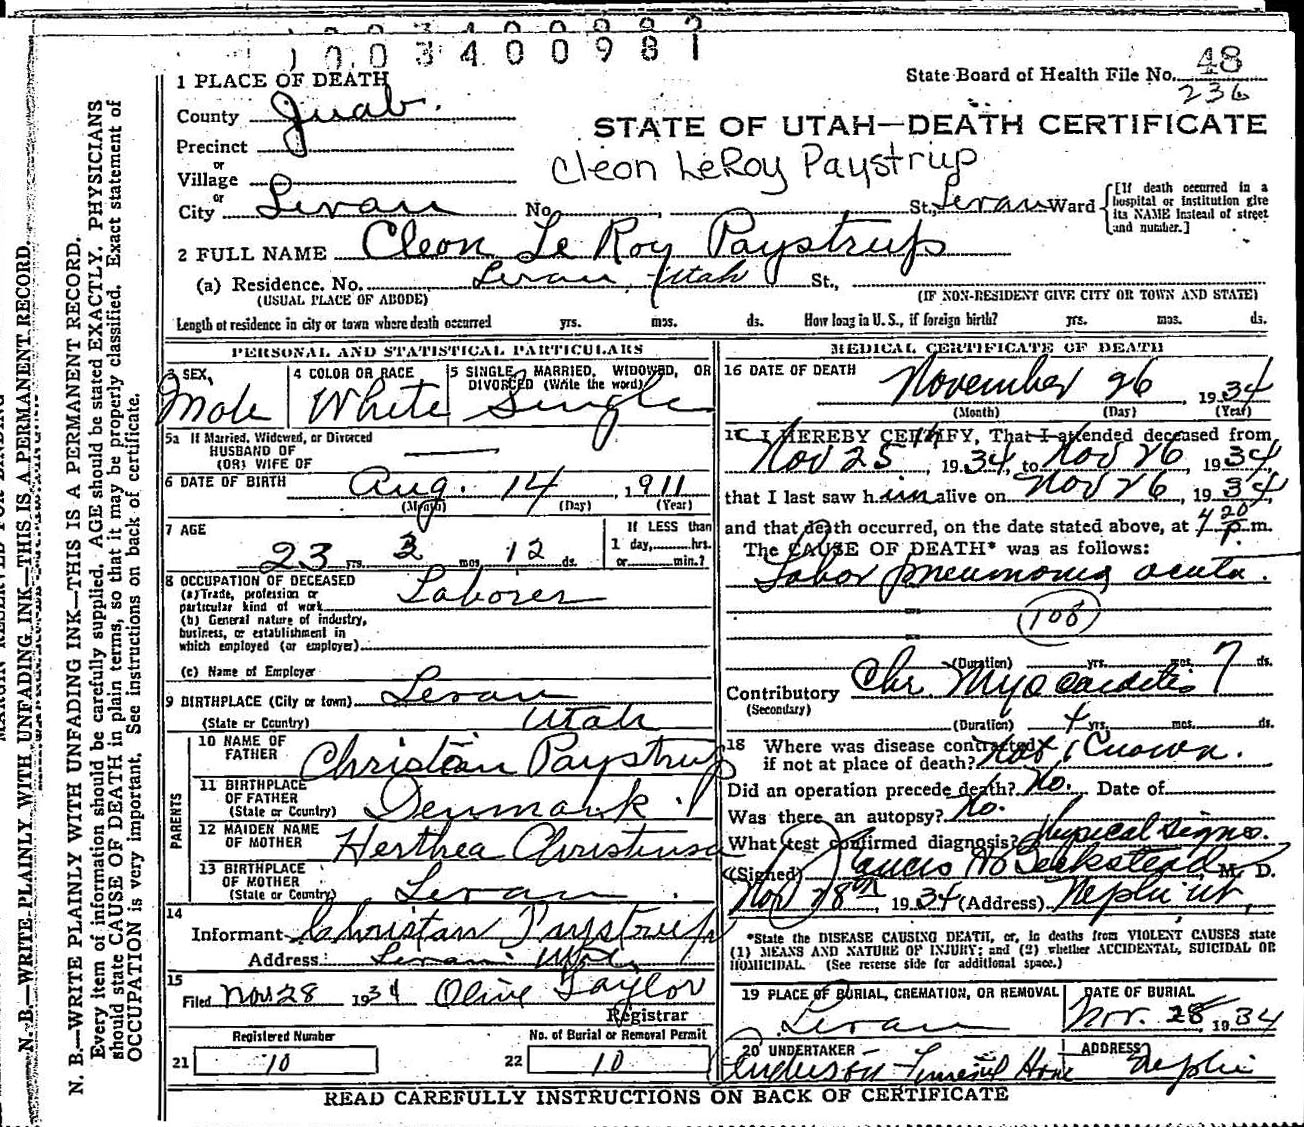 1003400987
State Board of Health File No. 48
236
1 PLACE OF DEATH
County Juab.
STATE OF UTAH—DEATH CERTIFICATE
Precinct
or
Cleon LeRoy Paystrup
Village
or
City Levan No. , St., Levan Ward
[If death occurred in a hospital or institution give its NAME instead of street and number.]
2 FULL NAME Cleon Le Roy Paystrup
(a) Residence. No. Levan, Utah St.,
(USUAL PLACE OF ABODE) (IF NON-RESIDENT GIVE CITY OR TOWN AND STATE)
Length of residence in city or town where death occurred yrs. mos. ds. How long in U. S., if foreign birth? yrs. mos. ds.
PERSONAL AND STATISTICAL PARTICULARS
3 SEX, 4 COLOR OR RACE 5 SINGLE, MARRIED, WIDOWED, OR
DIVORCED (Write the word)
Male White Single
5a If Married, Widowed, or Divorced
HUSBAND OF
(OR) WIFE OF
6 DATE OF BIRTH Aug. 14, 1911
(Month) (Day) (Year)
7 AGE If LESS than
1 day, hrs.
23 yrs. 3 mos. 12 ds. or min.?
8 OCCUPATION OF DECEASED
(a) Trade, profession or
particular kind of work Laborer
(b) General nature of industry,
business, or establishment in
which employed (or employer)
(c) Name of Employer
9 BIRTHPLACE (City or town) Levan
(State or Country) Utah
PARENTS
10 NAME OF
FATHER Christian Paystrup
11 BIRTHPLACE
OF FATHER
(State or Country) Denmark
12 MAIDEN NAME
OF MOTHER Herthea Christensen
13 BIRTHPLACE
OF MOTHER
(State or Country) Levan
14
Informant Christian Paystrup
Address: Levan Utah
15
Filed Nov 28 1934 Olive Taylor
Registrar
Registered Number No. of Burial or Removal Permit
21 10 22 10
MEDICAL CERTIFICATE OF DEATH
16 DATE OF DEATH November 26, 1934
(Month) (Day) (Year)
17 I HEREBY CERTIFY, That I attended deceased from
Nov 25th, 1934, to Nov 26, 1934,
that I last saw him alive on Nov 26, 1934,
and that death occurred, on the date stated above, at 4 20 p.m.
The CAUSE OF DEATH* was as follows:
Lobar pneumonia acuta.
108
(Duration) yrs. mos. 7 ds.
Contributory Chr Myocarditis
(Secondary)
(Duration) 4 yrs. mos. ds.
18 Where was disease contracted
if not at place of death? Not Known.
Did an operation precede death? No. Date of
Was there an autopsy? No.
What test confirmed diagnosis? Physical signs.
(Signed) Beckstead, M. D.
Nov 28th, 1934 (Address) Nephi Ut,
*State the DISEASE CAUSING DEATH, or, in deaths from VIOLENT CAUSES state
(1) MEANS AND NATURE OF INJURY; and (2) whether ACCIDENTAL, SUICIDAL OR
HOMICIDAL. (See reverse side for additional space.)
19 PLACE OF BURIAL, CREMATION, OR REMOVAL DATE OF BURIAL
Levan Nov. 28, 1934
20 UNDERTAKER ADDRESS
Anderson Funeral Home Nephi
READ CAREFULLY INSTRUCTIONS ON BACK OF CERTIFICATE
N. B.—WRITE PLAINLY WITH UNFADING INK—THIS IS A PERMANENT RECORD.
N. B.—WRITE PLAINLY WITH UNFADING INK—THIS IS A PERMANENT RECORD.
Every item of information should be carefully supplied. AGE should be stated EXACTLY. PHYSICIANS
should state CAUSE OF DEATH in plain terms, so that it may be properly classified. Exact statement of
OCCUPATION is very important. See instructions on back of certificate.